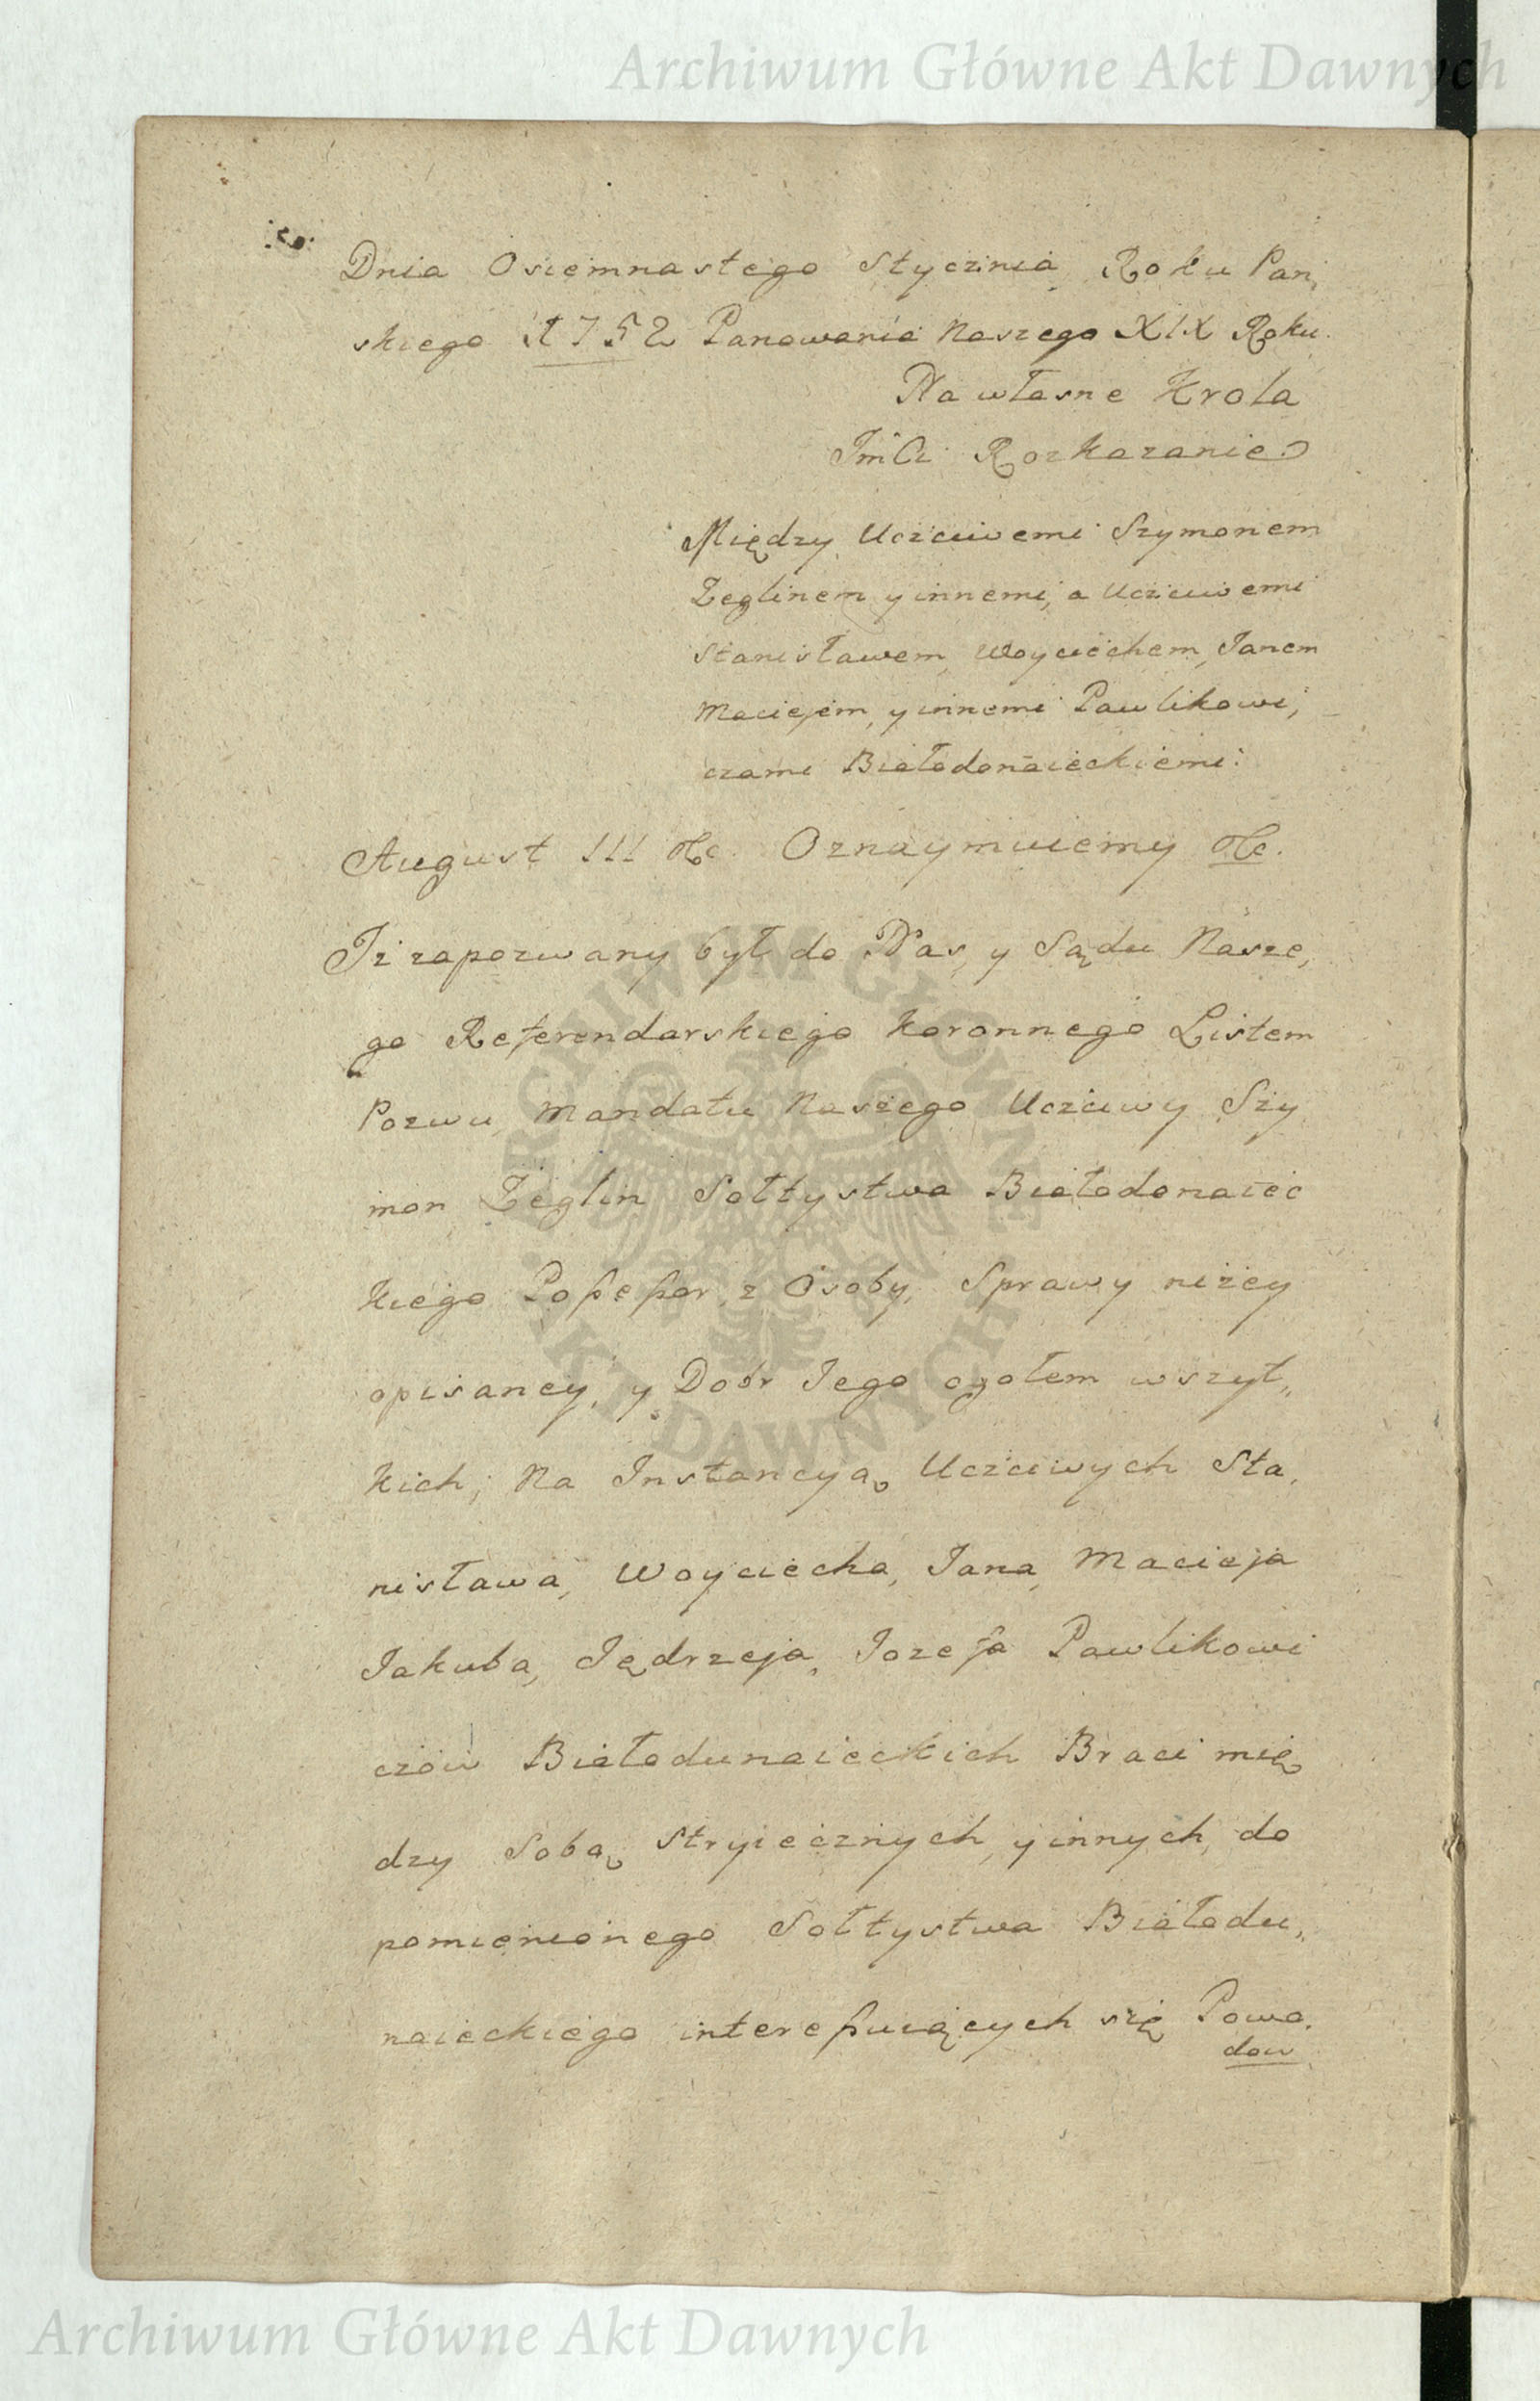 Archiwum Główne Akt Dawnych
Dnia Osiemnastego Stycznia Roku Pań,
skiego 1752 Panowania Naszego XIX Roku.
Na własne Krola
JmCi Rozkazanie
Między Uczciwemi Szymonem
Zeglinem y innemi, a Uczciwemi
Stanisławem, Woyciechem, Janem
Maciejem, y innemi Pawlikowi,
czami Białodonaieckiemi:
August III &c. Oznaymuiemy &c.
Iż zapozwany był do Nas, y Sądu Nasze,
go Referendarskiego Koronnego Listem
Pozwu, Mandatu Naszego Uczciwy Szy
mon Zeglin Sołtystwa Białodonaiec
kiego Possessor, z Osoby, Sprawy niżey
opisaney, y Dobr Jego ogołem wszyt„
kich; Na Instancyą Uczciwych Sta,
nisława, Woyciecha, Jana, Macieja
Jakuba, Jędrzeja, Jozefa Pawlikowi
czow Białodunaieckich Braci mię
dzy Sobą Stryiecznych, y innych, do
pomienionego Sołtystwa Białodu„
naieckiego interessuiących się Powo.
dow
ARCHIWUM GŁÓWNE
AKT DAWNYCH
Archiwum Główne Akt Dawnych